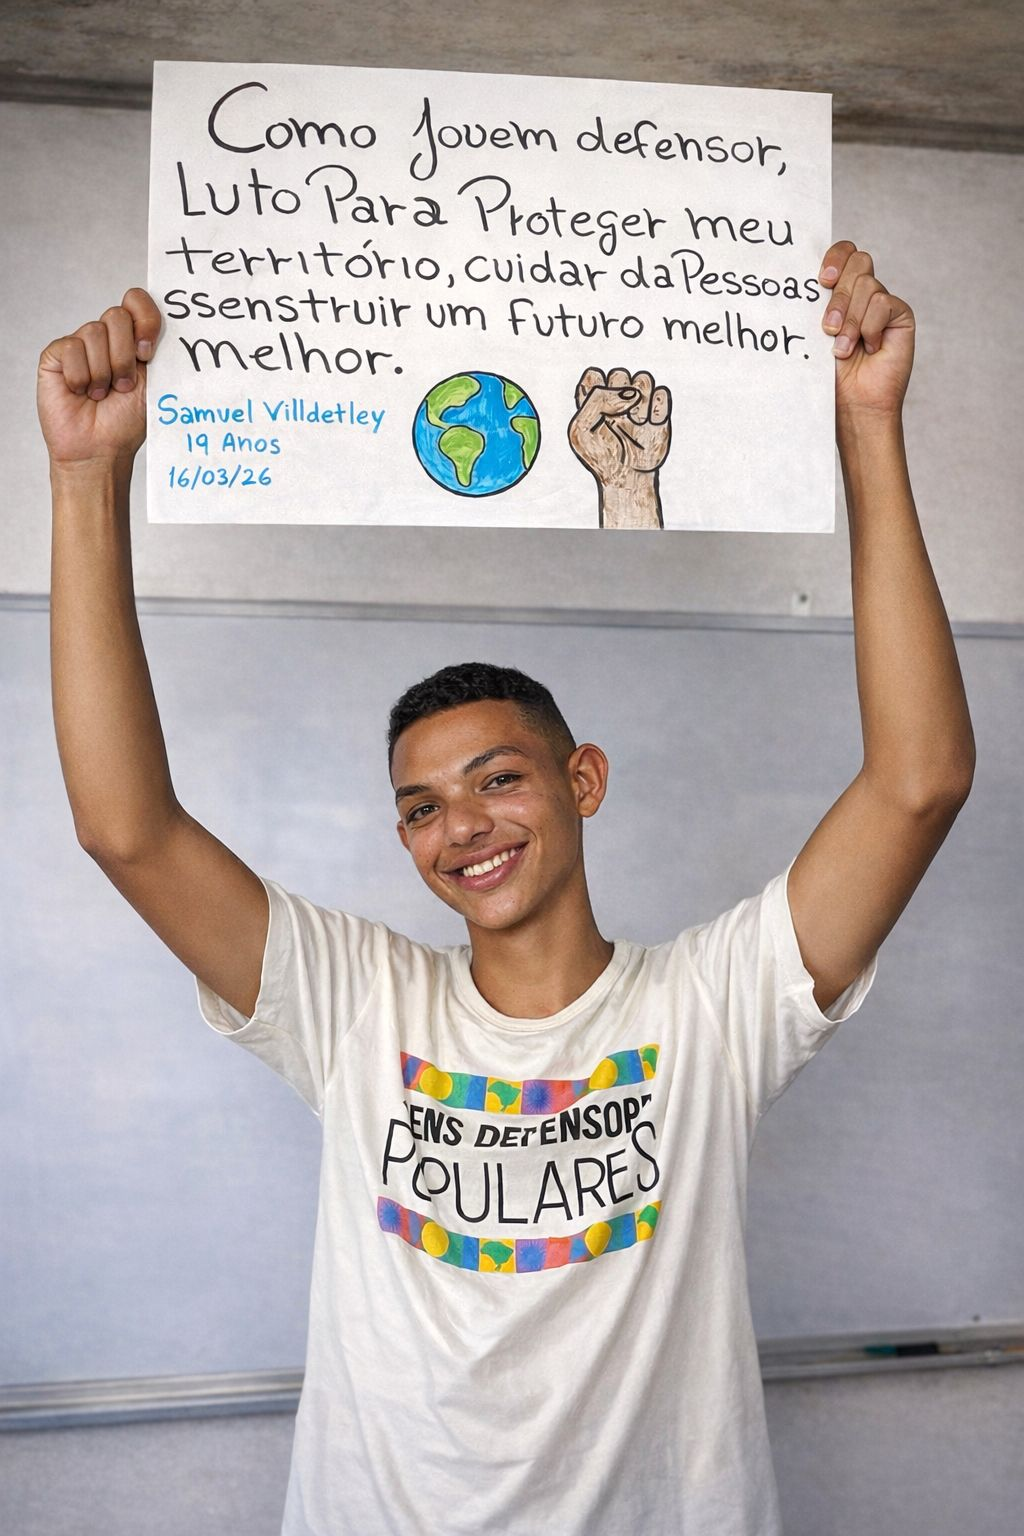 Como Jovem defensor,
Luto Para Proteger meu
território, cuidar da Pessoas
ssenstruir um futuro melhor.
melhor.
Samuel Villdetley
19 Anos
16/03/26
ENS DEFENSOR
POPULARES